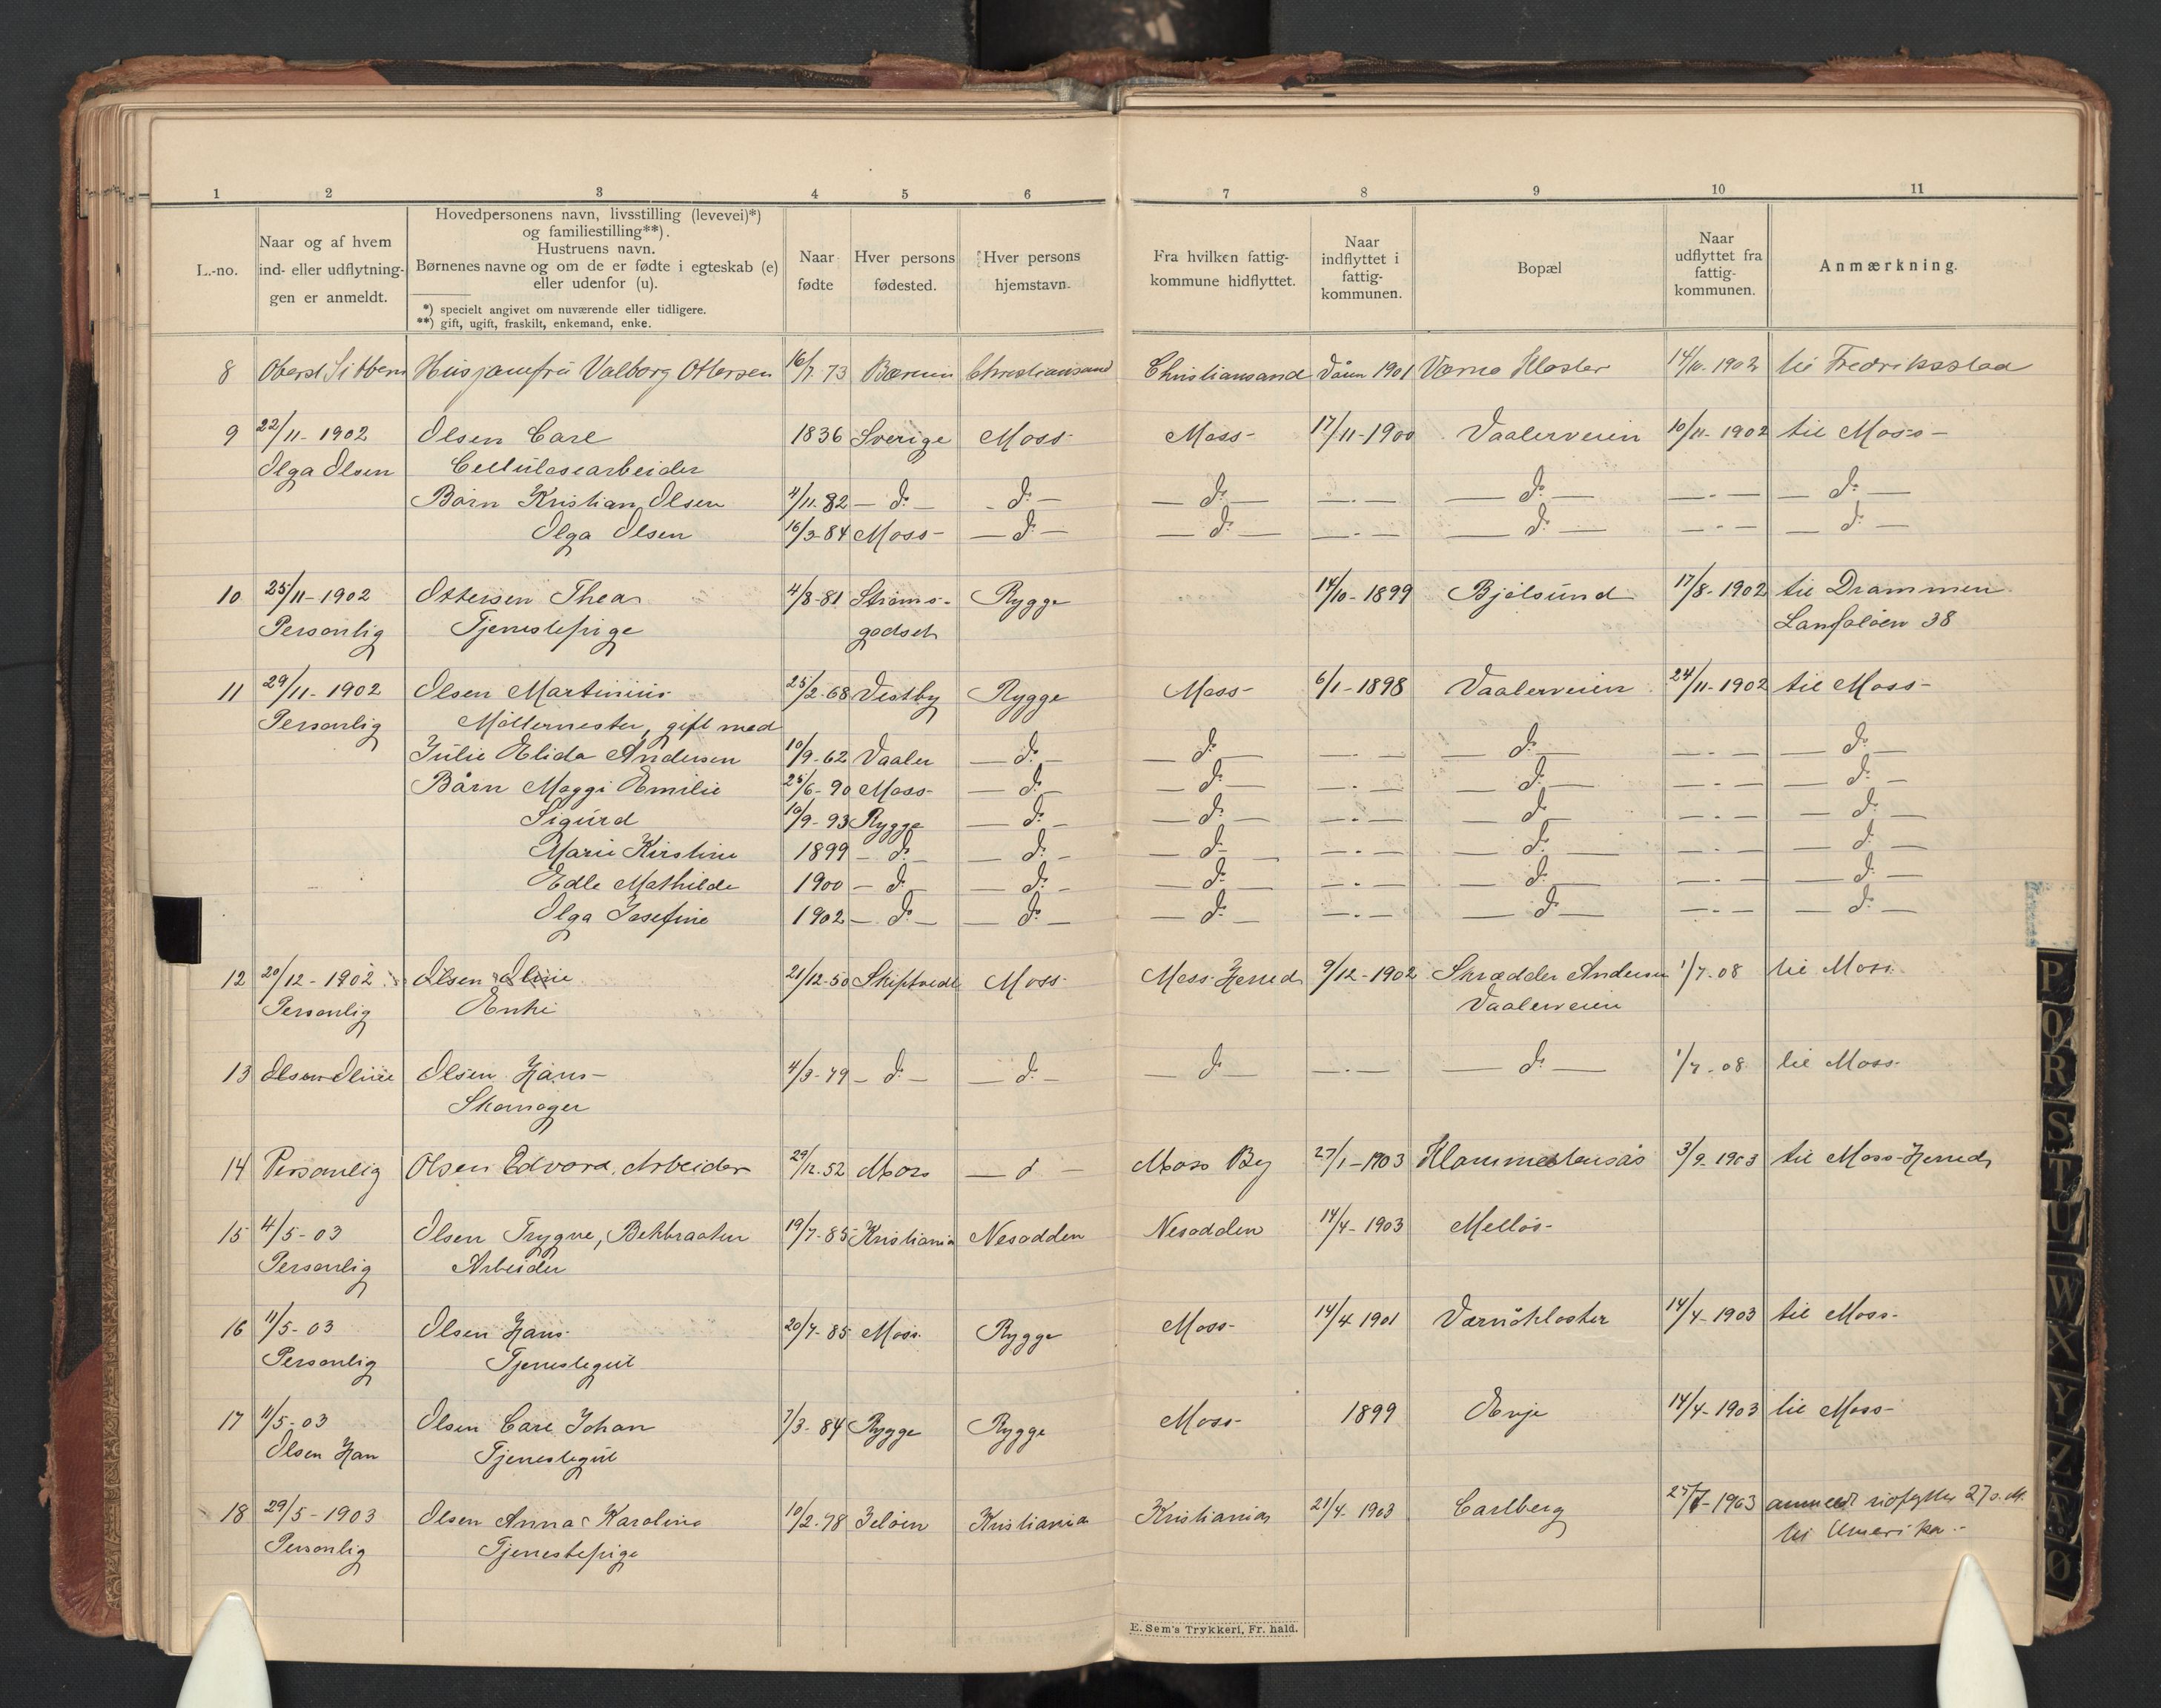 1 2 3 4 5 6 7 8 9 10 11
L.-no.
Naar og af hvem
ind- eller udflytnin-
gen er anmeldt.
Hovedpersonens navn, livsstilling (levevei)*)
og familiestilling**).
Hustruens navn.
Børnenes navne og om de er fødte i egteskab (e)
eller udenfor (u).
*) specielt angivet om nuværende eller tidligere.
**) gift, ugift, fraskilt, enkemand, enke.
Naar
fødte
Hver persons
fødested.
Hver persons
hjemstavn.
Fra hvilken fattig-
kommune hidflyttet.
Naar
indflyttet i
fattig-
kommunen.
Bopæl
Naar
udflyttet fra
fattig-
kommunen.
Anmærkning.
8 Oberst Sibbern Husjomfru Valborg Ottersen 16/7 73 Bærum Christiansand Christiansand Våren 1901 Værne Kloster 14/10-1902 til Fredriksstad
9 22/11-1902 Olsen Carl 1836 Sverige Moss Moss 17/11-1900 Vaalerveien 10/11-1902 til Moss
Olga Olsen Cellulosearbeider
Børn Kristian Olsen 4/11-82 — do — — do — — do — — " — — do — — " — — do —
Olga Olsen 16/3-84 Moss — do — — do — — " — — do — — " — — do —
10 25/11-1902 Ottersen Thea 4/8-81 Strøms- Rygge 14/10-1899 Bjølsund 17/8-1902 til Drammen
Personlig Tjenestepige godset 38
11 29/11-1902 Olsen Martinius 25/2-68 Vestby Rygge Moss 6/1-1898 Vaalerveien 24/11-1902 til Moss
Personlig Møllermester, gift med
Julie Elida Andersen 10/9-62 Vaaler — do — — do — — " — — do — — " — — do —
Børn Maggi Emilie 25/6-90 Moss — do — — do — — " — — do — — " — — do —
Sigurd 10/9-93 Rygge — do — — do — — " — — do — — " — — do —
Marie Kirstine 1899 — do — — do — — do — — " — — do — — " — — do —
Edle Mathilde 1900 — do — — do — — do — — " — — do — — " — — do —
Olga Josefine 1902 — do — — do — — do — — " — — do — — " — — do —
12 20/12-1902 Olsen Oline 21/12-50 Skiptvedt Moss Moss Herred 9/12-1902 Skrædder Andersen 1/7-08 til Moss
Personlig Enke Vaalerveien
13 Olsen Oline Olsen Hans 4/3-79 — do — — do — — do — — " — — do — 1/7-08 til Moss
Skomager
14 Personlig Olsen Edvard, Arbeider 29/12-52 Moss — d — Moss By 27/1-1903 3/9-1903 til Moss Herred
15 4/5-03 Olsen Trygve, Bekbraaten 19/7-85 Kristiania Nesodden Nesodden 14/4-1903 Melløs
Personlig Arbeider
16 11/5-03 Olsen Hans 20/7-85 Moss Rygge Moss 14/4 1901 Værnekloster 14/4-1903 til Moss
Personlig Tjenestegut
17 11/5-03 Olsen Carl Johan 7/3-84 Rygge Rygge Moss 1899 Evje 14/4-1903 til Moss
Olsen Han Tjenestegut
18 29/5-1903 Olsen Anna Karoline 10/2-78 Jeløen Kristiania Kristiania 21/4-1903 Carlberg 25/7-1903 anmeldt udflyttet 27 s. M.
Personlig Tjenestepige til Amerika
E. Sem's Trykkeri, Fr. hald.
P
Q
R
S
T
U
W
X
Y
Z
Æ
Ø